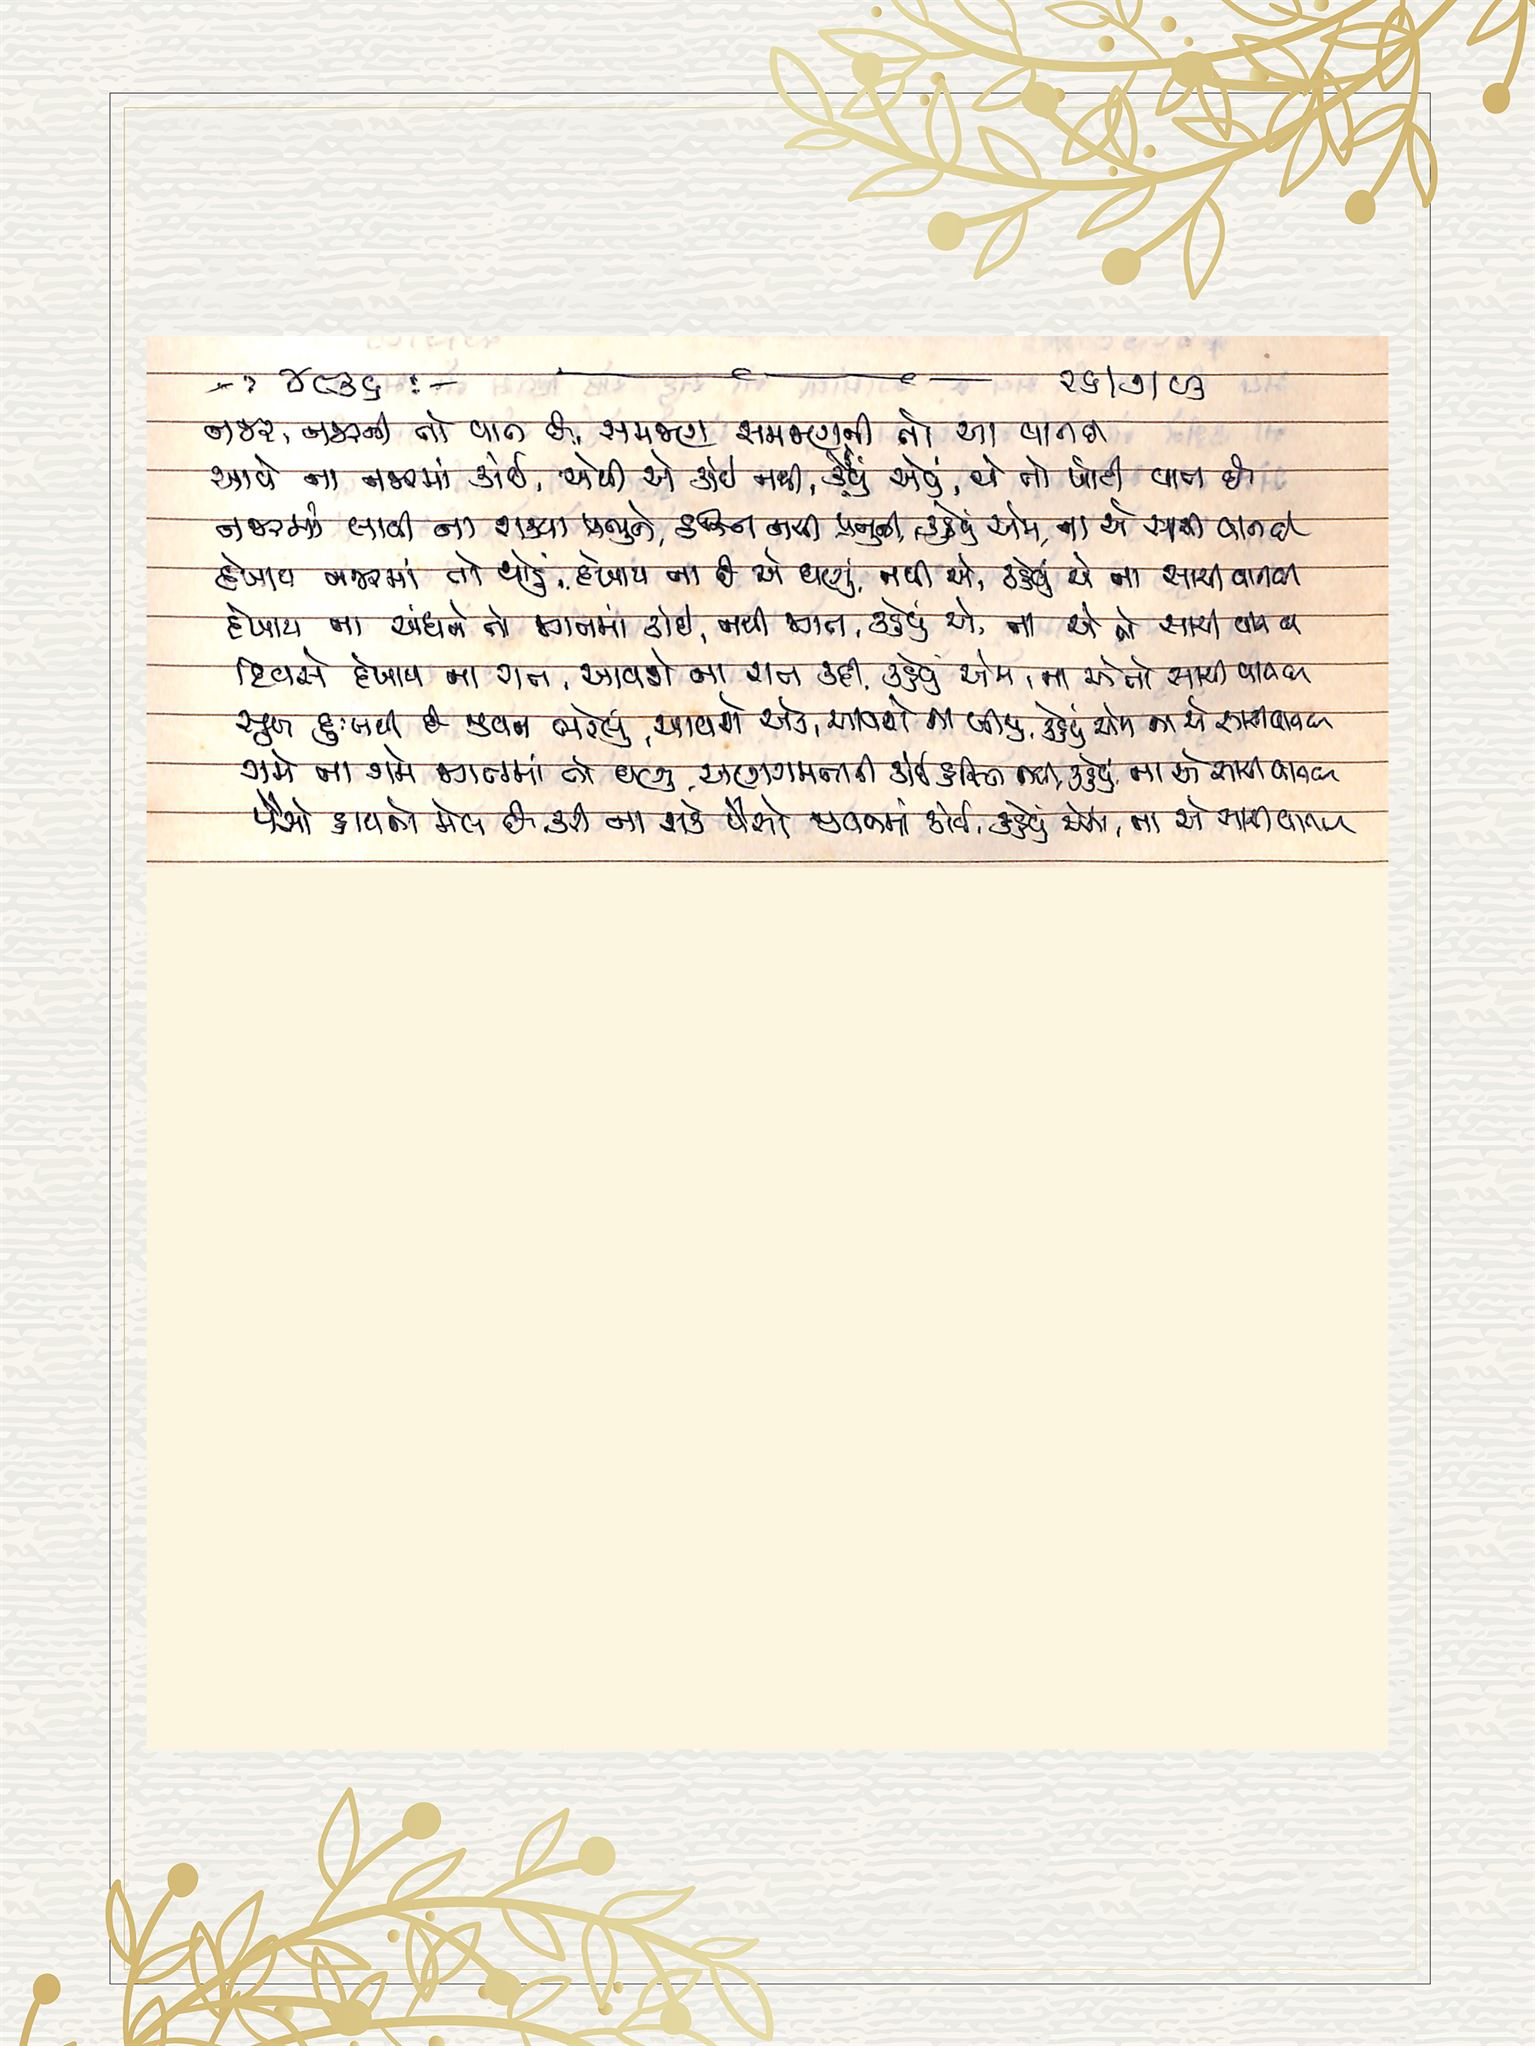 -: ૪૮૩૬ :- ૨૬/૭/૯૩
નજર, નજરની તો વાત છે, સમજણ સમજણની તો આ વાત છે
આવે ના નજરમાં કોઈ, એથી એ કોઈ નથી, કહેવું એવું, એ તો ખોટી વાત છે
નજરમાં લાવી ના શક્યા પ્રભુને, હસ્તિ નથી પ્રભુની, કહેવું એમ, ના એ સાચી વાત છે
દેખાય નજરમાં તો થોડું, દેખાય ના છે એ ઘણું, નથી એ, કહેવું એ ના સાચી વાત છે
દેખાય ના અંધને તો જગતમાં કોઈ, નથી જગત, કહેવું એ, ના એ તો સાચી વાત છે
દિવસે દેખાય ના રાત, આવશે ના રાત કદી, કહેવું એમ, ના એ તો સાચી વાત છે
સુખ દુઃખથી છે જીવન ભરેલું, આવશે એક, આવશે ના બીજું, કહેવું એમ ના એ સાચી વાત છે
ગમે ના ગમે જગતમાં તો ઘણું, અણગમતાની કોઈ હસ્તિ નથી, કહેવું, ના એ સાચી વાત છે
પૈસો હાથનો મેલ છે, કરી ના શકે પૈસો જીવનમાં કોઈ, કહેવું એમ, ના એ સાચી વાત છે